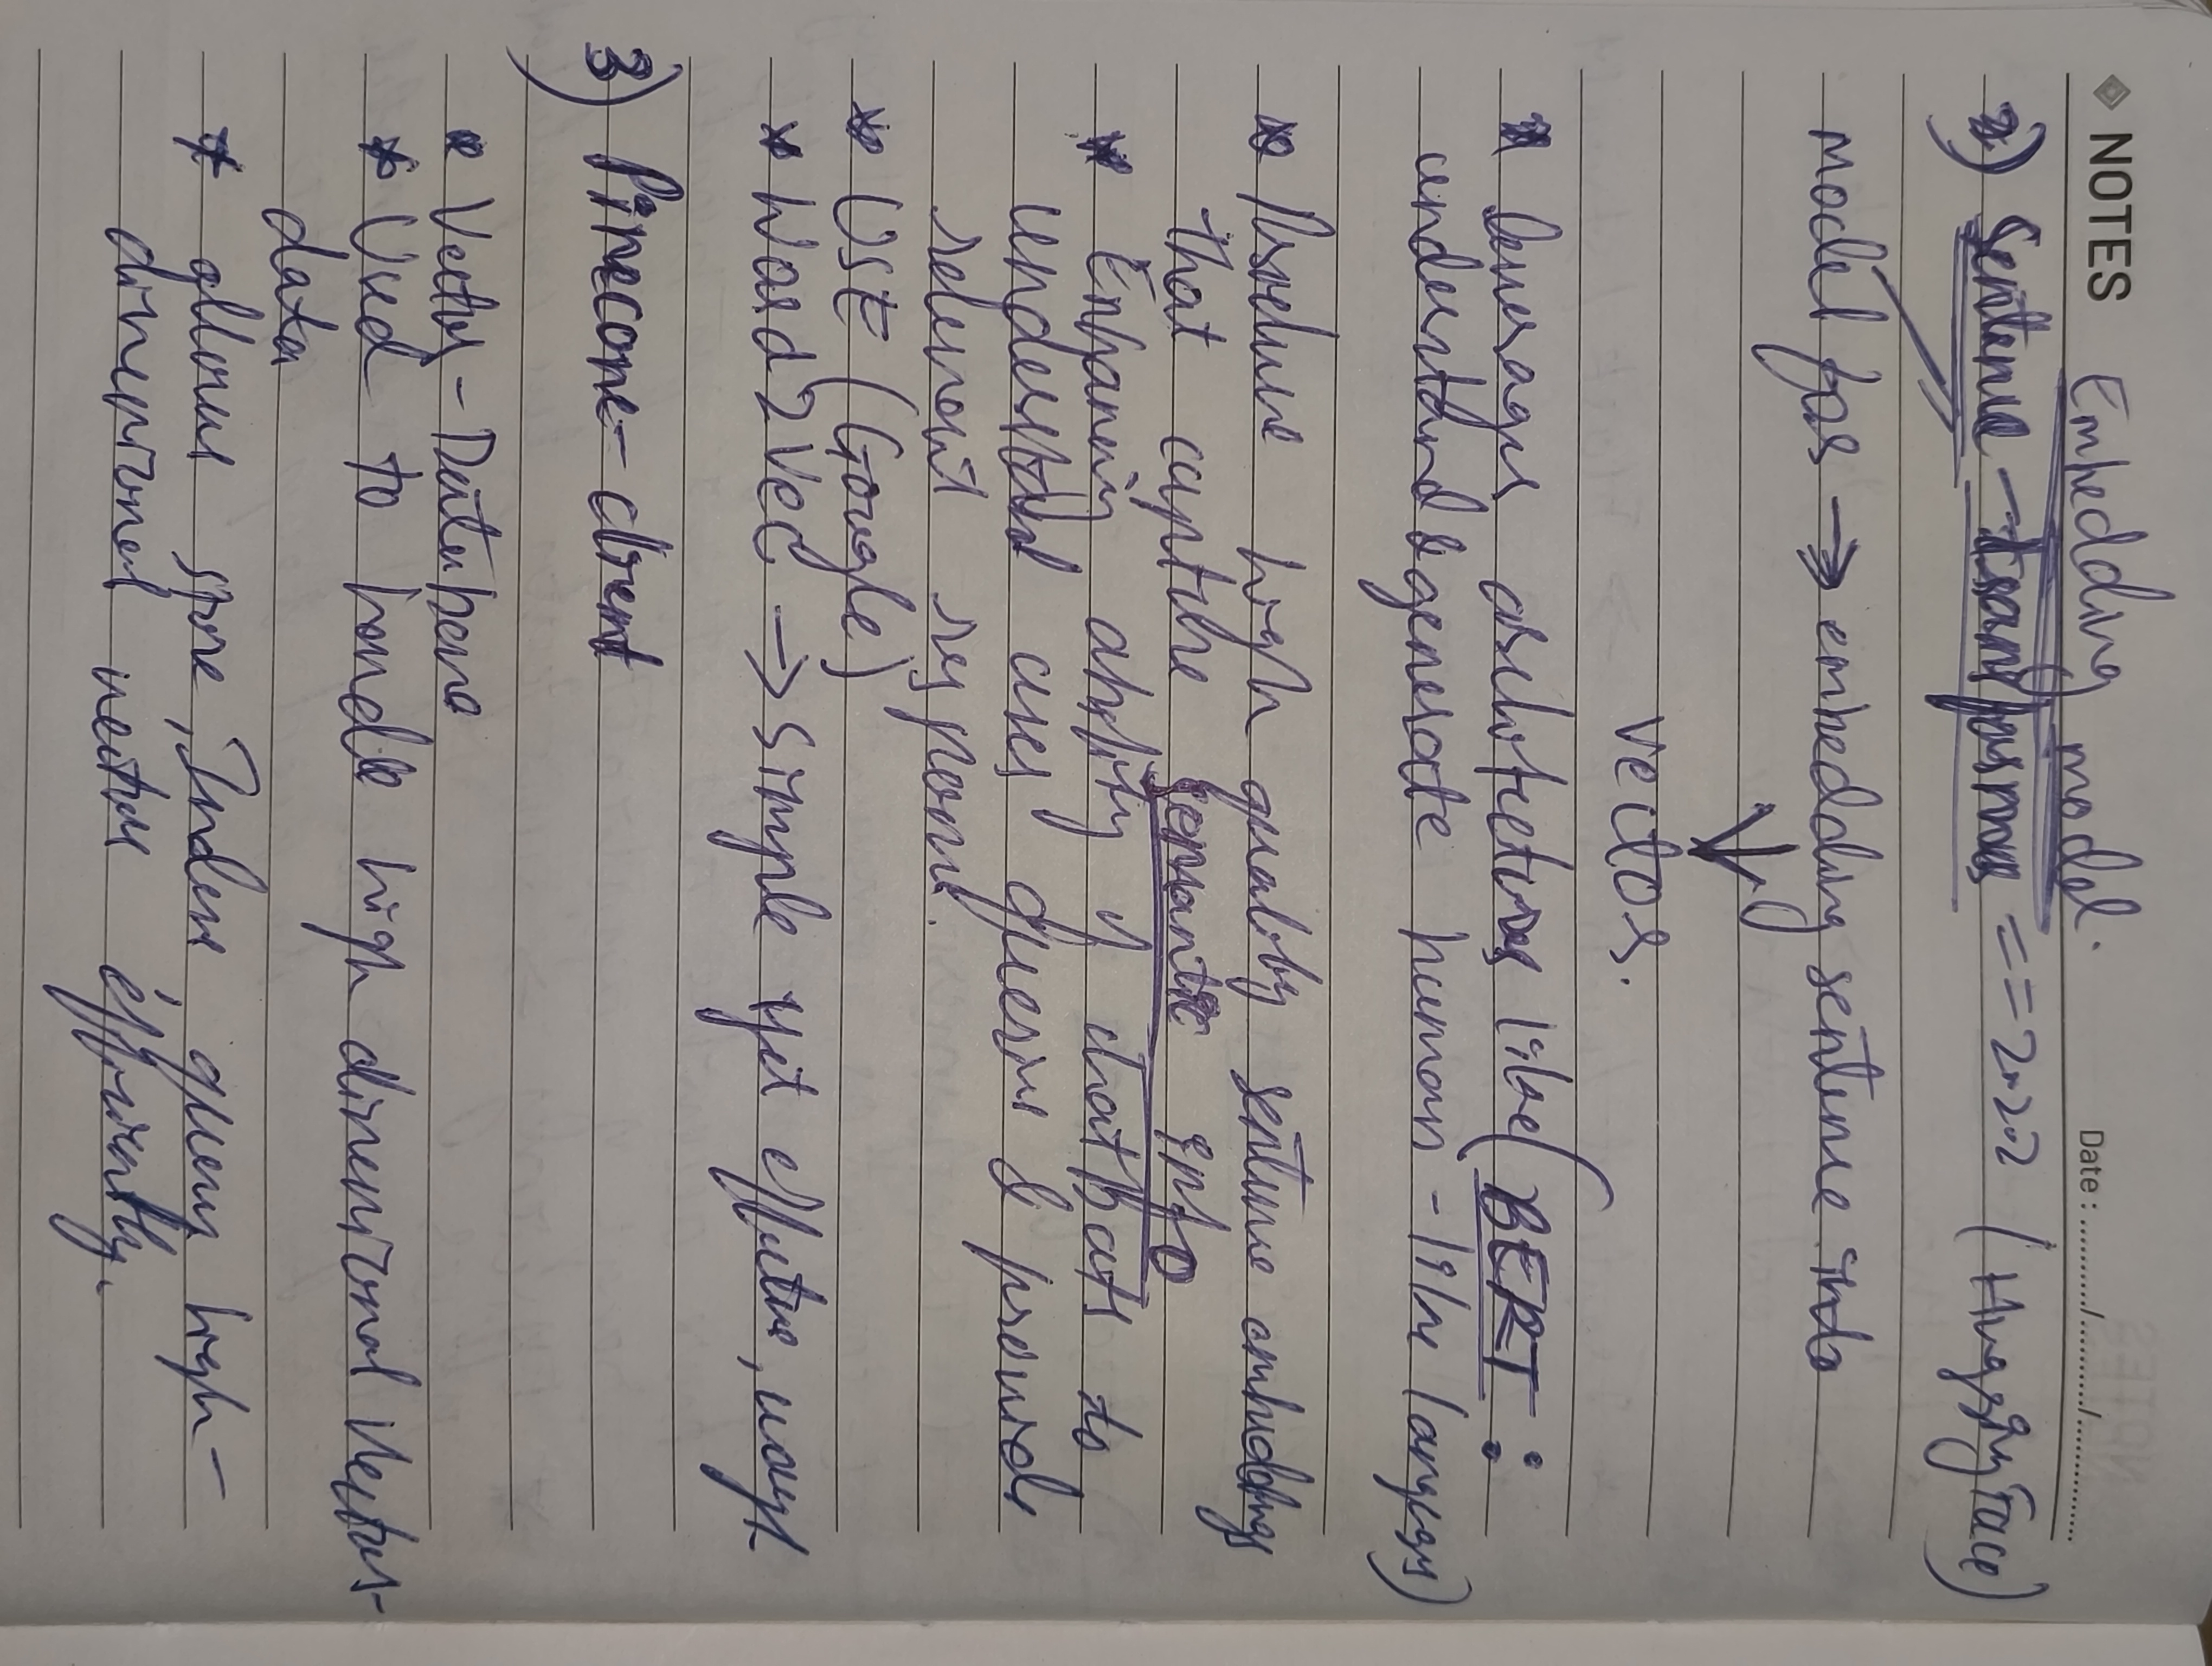 NOTES Embedding model.
Date : ......../......../........
2) Sentence-transformers ==2.2.2 (Hugging Face)
model for → embedding sentence into
vector.
* leverages architectures like (BERT :
understand & generate human-like languages)
* Produce high quality sentence embeddings
that capture semantic info
* Enhancing ability of chatbots to
understand user queries & provide
relevant respons.
* USE (Google)
* Word2Vec → simple yet effective,
3) Pinecone-client
* Vector-Database
* Used to handle high dimensional Vector-
data
* allows store, Index query high-
dimensional vectors efficiently.